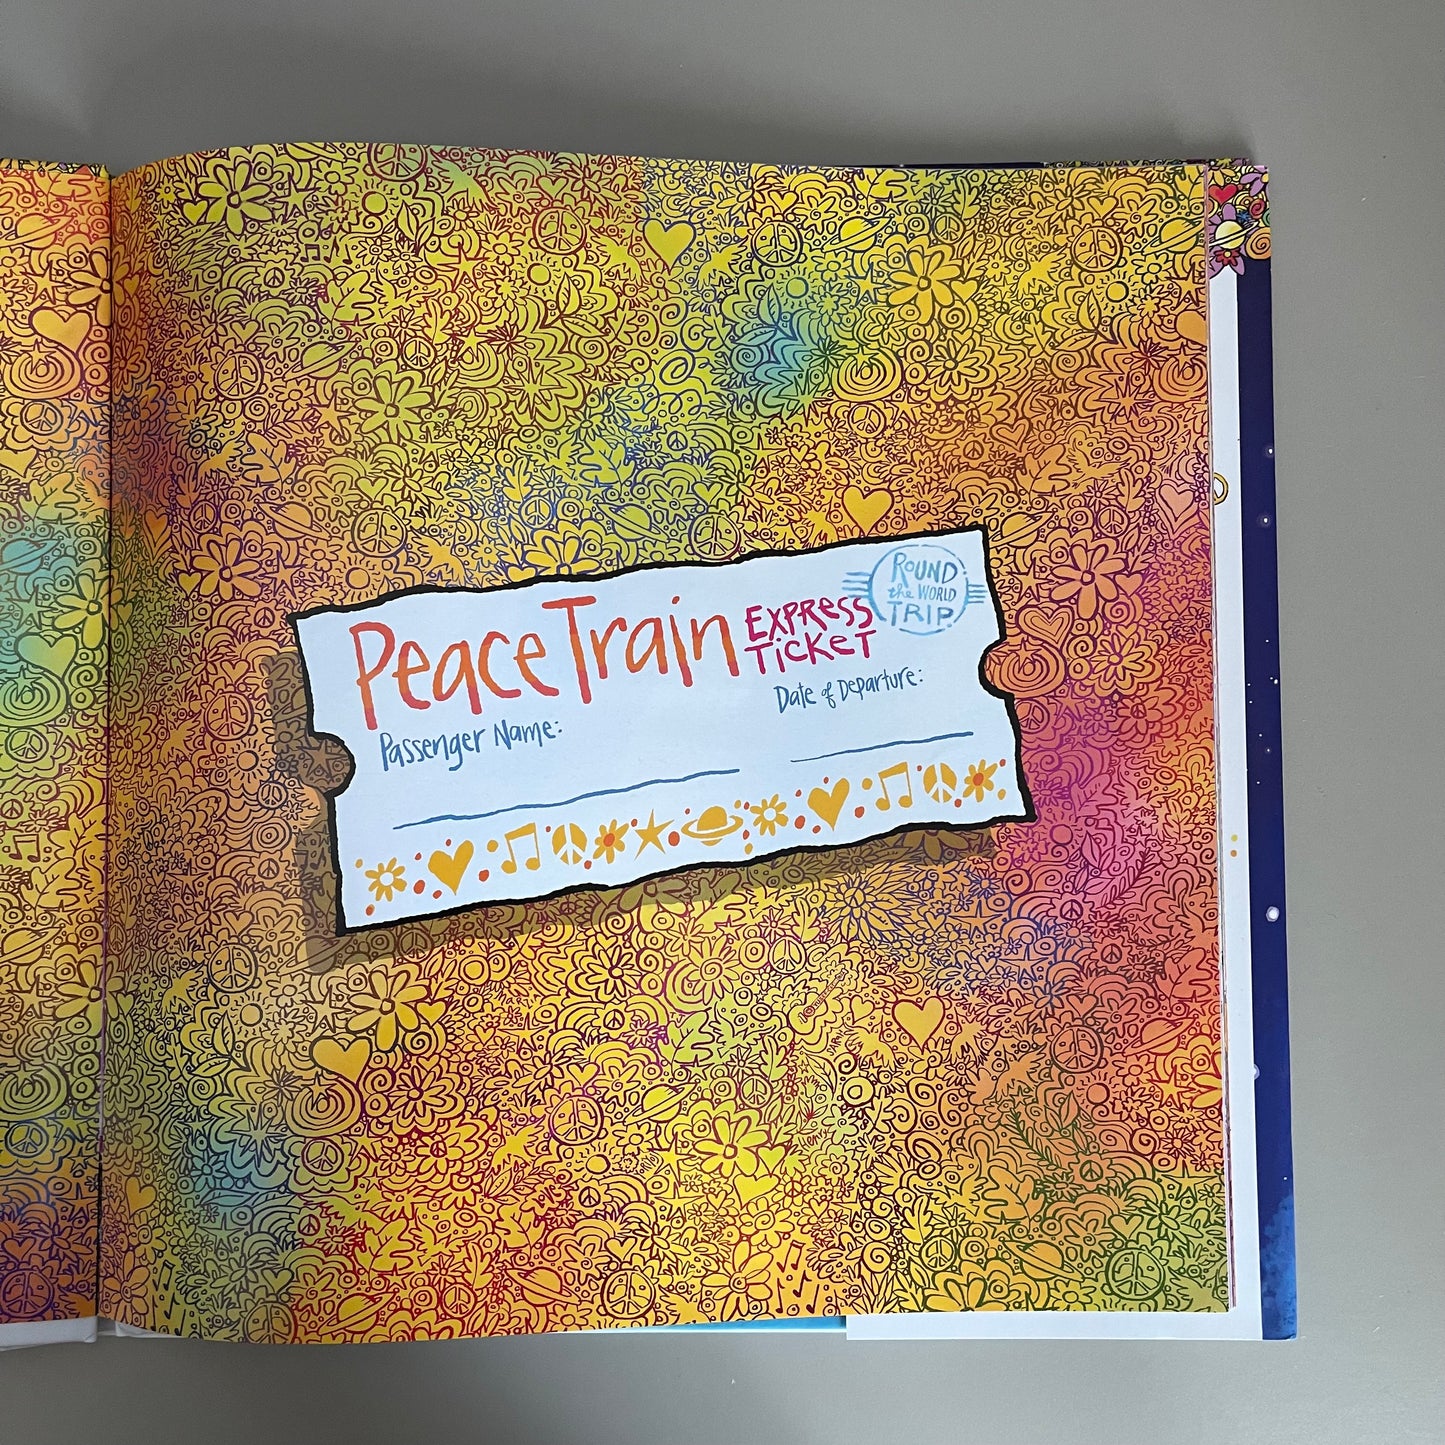 Peace Train
EXPRESS
TICKET
ROUND
the WORLD
TRIP
Passenger Name:
Date of Departure: